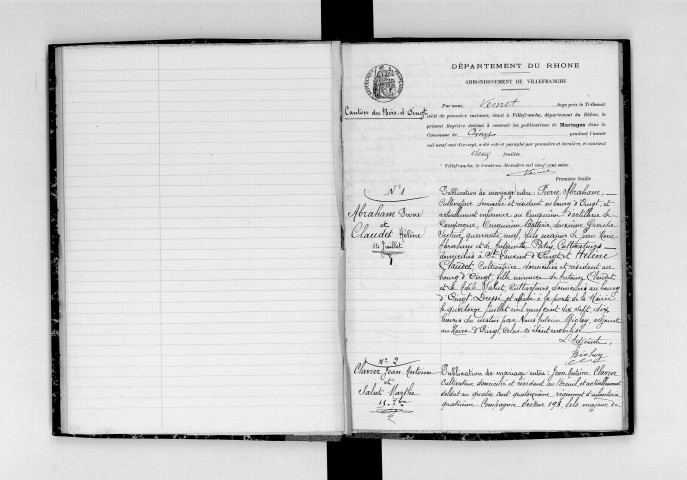 DÉPARTEMENT DU RHONE
ARRONDISSEMENT DE VILLEFRANCHE
Canton du Bois d'Oingt
Par nous, Juge près le Tribunal
civil de première instance, séant à Villefranche, département du Rhône, le
présent Registre destiné à recevoir les publications de Mariages dans la
Commune de Oingt pendant l'année
mil neuf cent dix-sept, a été coté et paraphé par première et dernière, et contient
deux feuilles.
Villefranche, le trente-un décembre mil neuf cent seize.
Première feuille
N° 1
Abraham Pierre
et
Claudet Hélène
14 Juillet
Publication de mariage entre: Pierre Abraham,
Cultivateur domicilié et résidant au bourg d'Oingt, et
actuellement au Cinquième d'artillerie de
Campagne, Cinquième Batterie,
Secteur quarante neuf, fils majeur de
Abraham et de Cultivateurs
domiciliés à St Laurent d'Oingt et Hélène
Claudet, Cultivatrice domiciliée et résidant au
bourg d'Oingt, fille mineure de Antoine Claudet
et de Cultivateurs, domiciliés au bourg
d'Oingt. Dressé et affiché à la porte de la Mairie
le quatorze Juillet mil neuf cent dix sept, dix
heures du matin par Nous adjoint
au Maire d'Oingt, celui-ci étant mobilisé
L'Adjoint,
N° 2
Clavier Jean Antoine
et
Salut Marthe
15 7bre
Publication de mariage entre: Jean Antoine Clavier
Cultivateur domicilié et résidant au Breuil et actuellement
soldat au quatre cent quatorzième régiment d'infanterie
quatrième Compagnie secteur 198, fils majeur de